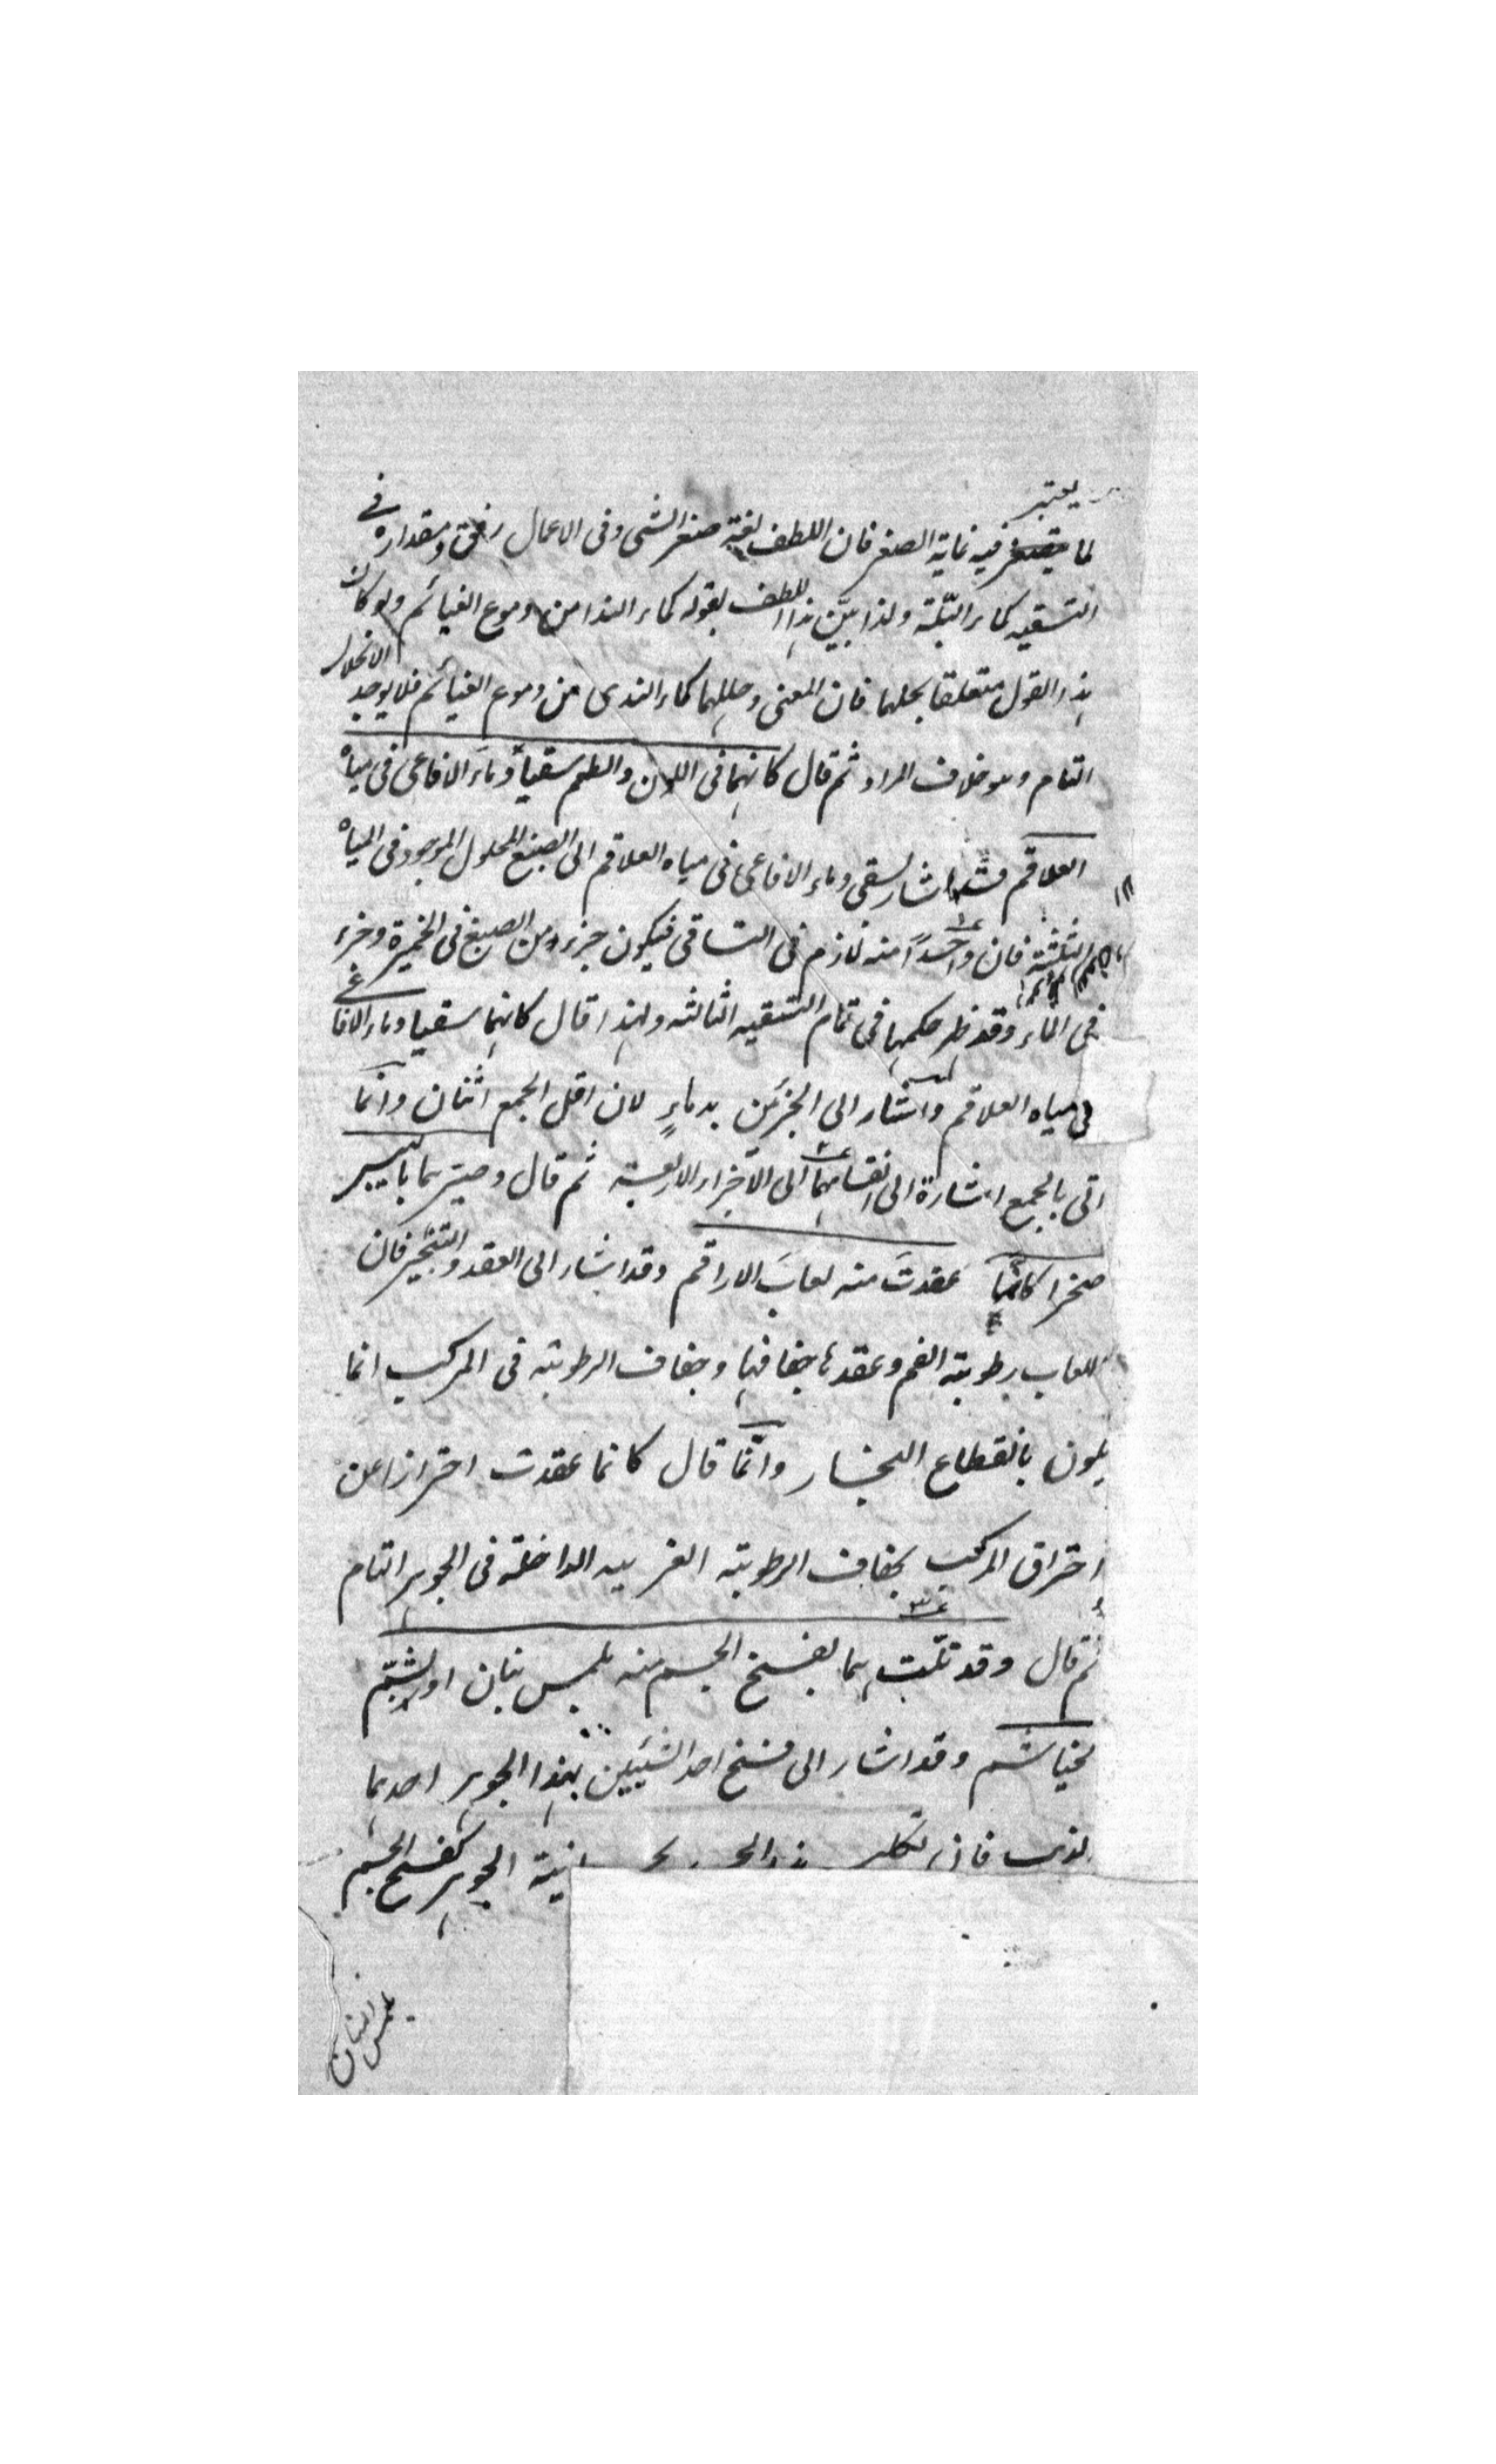 يعتبر
لما يصغر فيه نهاية الصغر فان اللطف لغة صغر الشئ وفى الاعمال رقق ومقداره فى
التسقيه كماء البلة ولذا بيّن هذا اللطف بقوله كماء الندا من دموع الغيائم ولو كان
هذا القول متعلقا بحلهما فان المعنى وحللهما كماء الندى من دموع الغيائم فلا يوجد الانحلال
التام وهو خلاف المراد ثم قال كانهما فى اللون والطعم سقيا دماءَ الافاعى فى مياه
العلاقم اشار بسقى دماء الافاعى فى مياه العلاقم الى الصبغ المحلول الموجود فى المياه
الثلثة فان واحداً منه لازم فى التساقى فيكون جزء من الصبغ فى الخميرة وجزء
فى الماء وقد ظهر حكمها فى تمام التسقيه الثالثه ولهذا قال كانهما سقيا دماء الافاعى
فى مياه العلاقم واشار الى الجزئين بدماءٍ لان اقل الجمع اثنان وانّما
اتى بالجمع اشارة الى انقسامهما الى الاجزاء الاربعة ثم قال وصيرهما باليبس
صخرا كانّما عقدتَ منه لعابَ الاراقم وقد اشار الى العقد والتحجير فان
اللعاب رطوبة الفم وعقدها جفافها وجفاف الرطوبة فى المركب انما
يكون بانقطاع البخار وانّما قال كانما عقدت احترازا عن
احتراق المركب بجفاف الرطوبة الغريبه الداخلة فى الجوهر التام
ثم قال وقد تلّت بما يفسخ الجسم منه بلمس بنان او بشمّ
لخياشم وقد اشار الى فسخ احد الشيئين بهذا الجوهر احدهما
الجوهر كفسخ الجسم
بلمس البنان